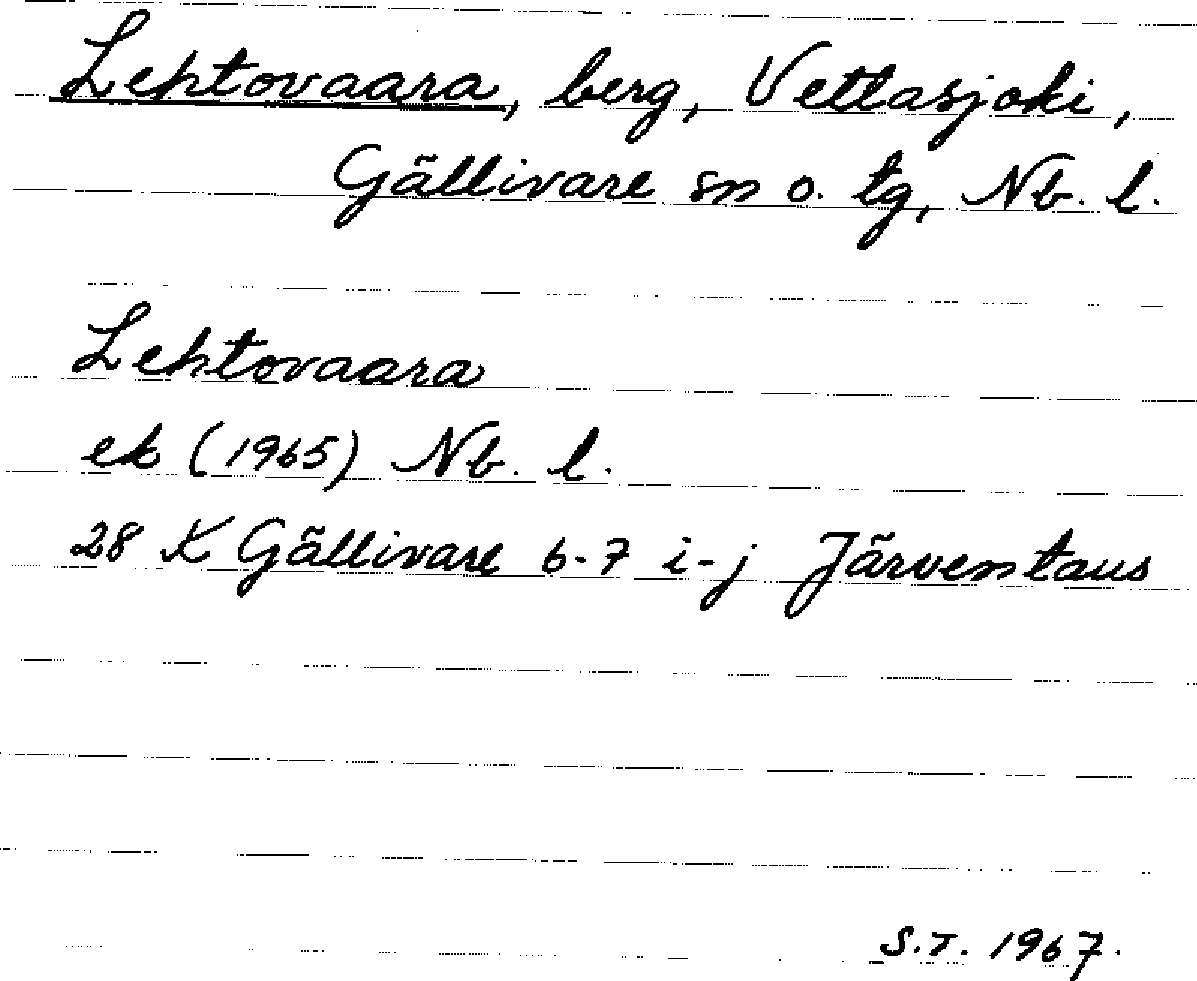 Lehtovaara, berg, Vettasjoki,
Gällivare sn o. tg, Nb. l.
Lehtovaara
ek (1965) Nb. l.
28 K Gällivare 6-7 i-j Järventaus
S.T. 1967.